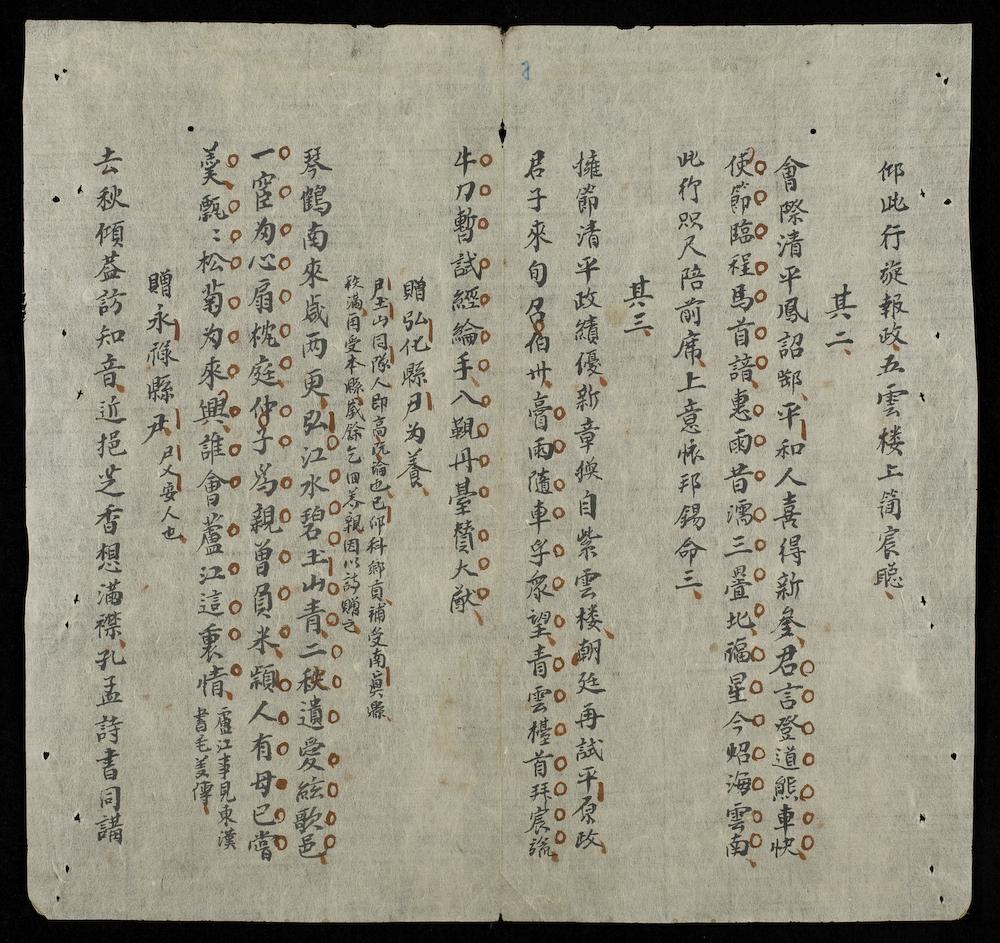 仰此行旋報政五雲楼上简宸聪
其二
會際清平鳳詔鄒平和人喜得新參君言登道熊車快
使節臨程馬首諳惠雨昔濡三疊北福星今炤海雲南
此行咫尺陪前席上意懷邦錫命三
其三
擁節清平政績優新章換自紫雲楼朝廷再試平原政
君子來旬召伯卅膏雨隨車孚眾望青雲檯首拜宸旒
牛刀暫試經綸手入覲丹臺贊大猷
贈弘化縣尹为養
尹玉山同隊人即高沉論也己卯科鄉貢補受南真縣
秩滿再受本縣歲餘乞回养親因以詩贈之
琴鶴南來歲两更弘江水碧玉山青二秩遺愛絃歌邑
一宦为心扇枕庭仲子爲親曽負米潁人有母已嘗
羹飄〻松菊为來興誰會蘆江這裏情
廬江事見東漢
書毛義傳
贈永祿縣尹
尹乂安人也
去秋傾蓋訪知音近挹芝香想满襟孔孟詩書同講